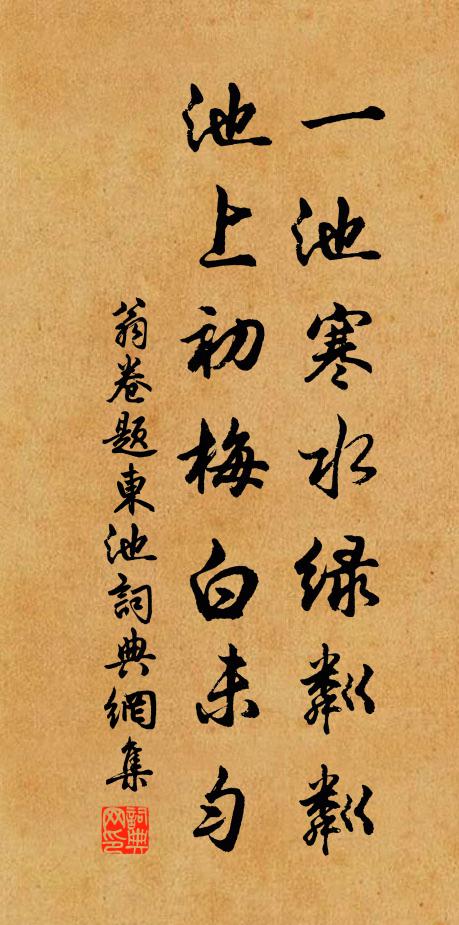 一池寒水绿粼粼
池上初梅白未匀
翁卷題東池詞典網集
詞典网印